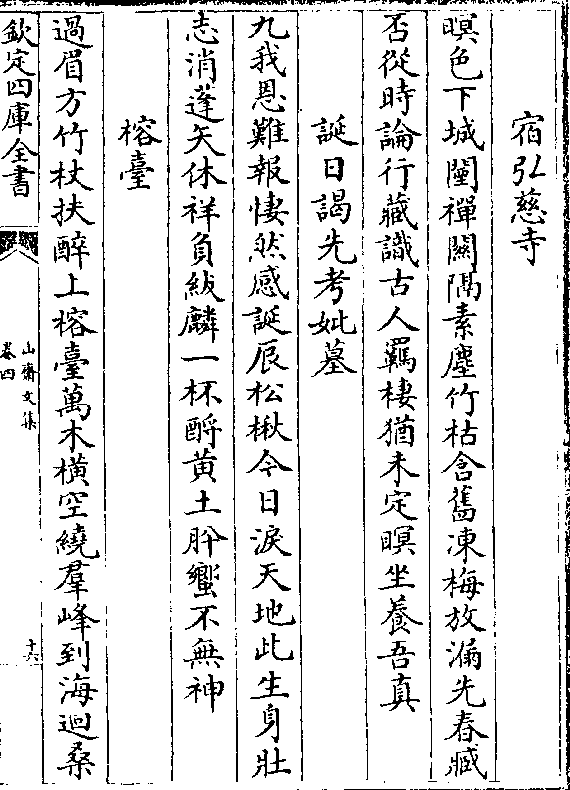 宿弘慈寺
暝色下城闉禪關隔素塵竹枯含舊凍梅放漏先春臧
否從時論行藏識古人羈棲猶未定暝坐養吾真
誕日謁先考妣墓
九我恩難報悽然感誕辰松楸今日淚天地此生身壯
志消蓬矢休祥負紱麟一杯酹黄土肸蠁不無神
榕臺
過眉方竹杖扶醉上榕臺萬木橫空繞羣峰到海迴桑
欽定四庫全書
山齋文集
卷四
十六